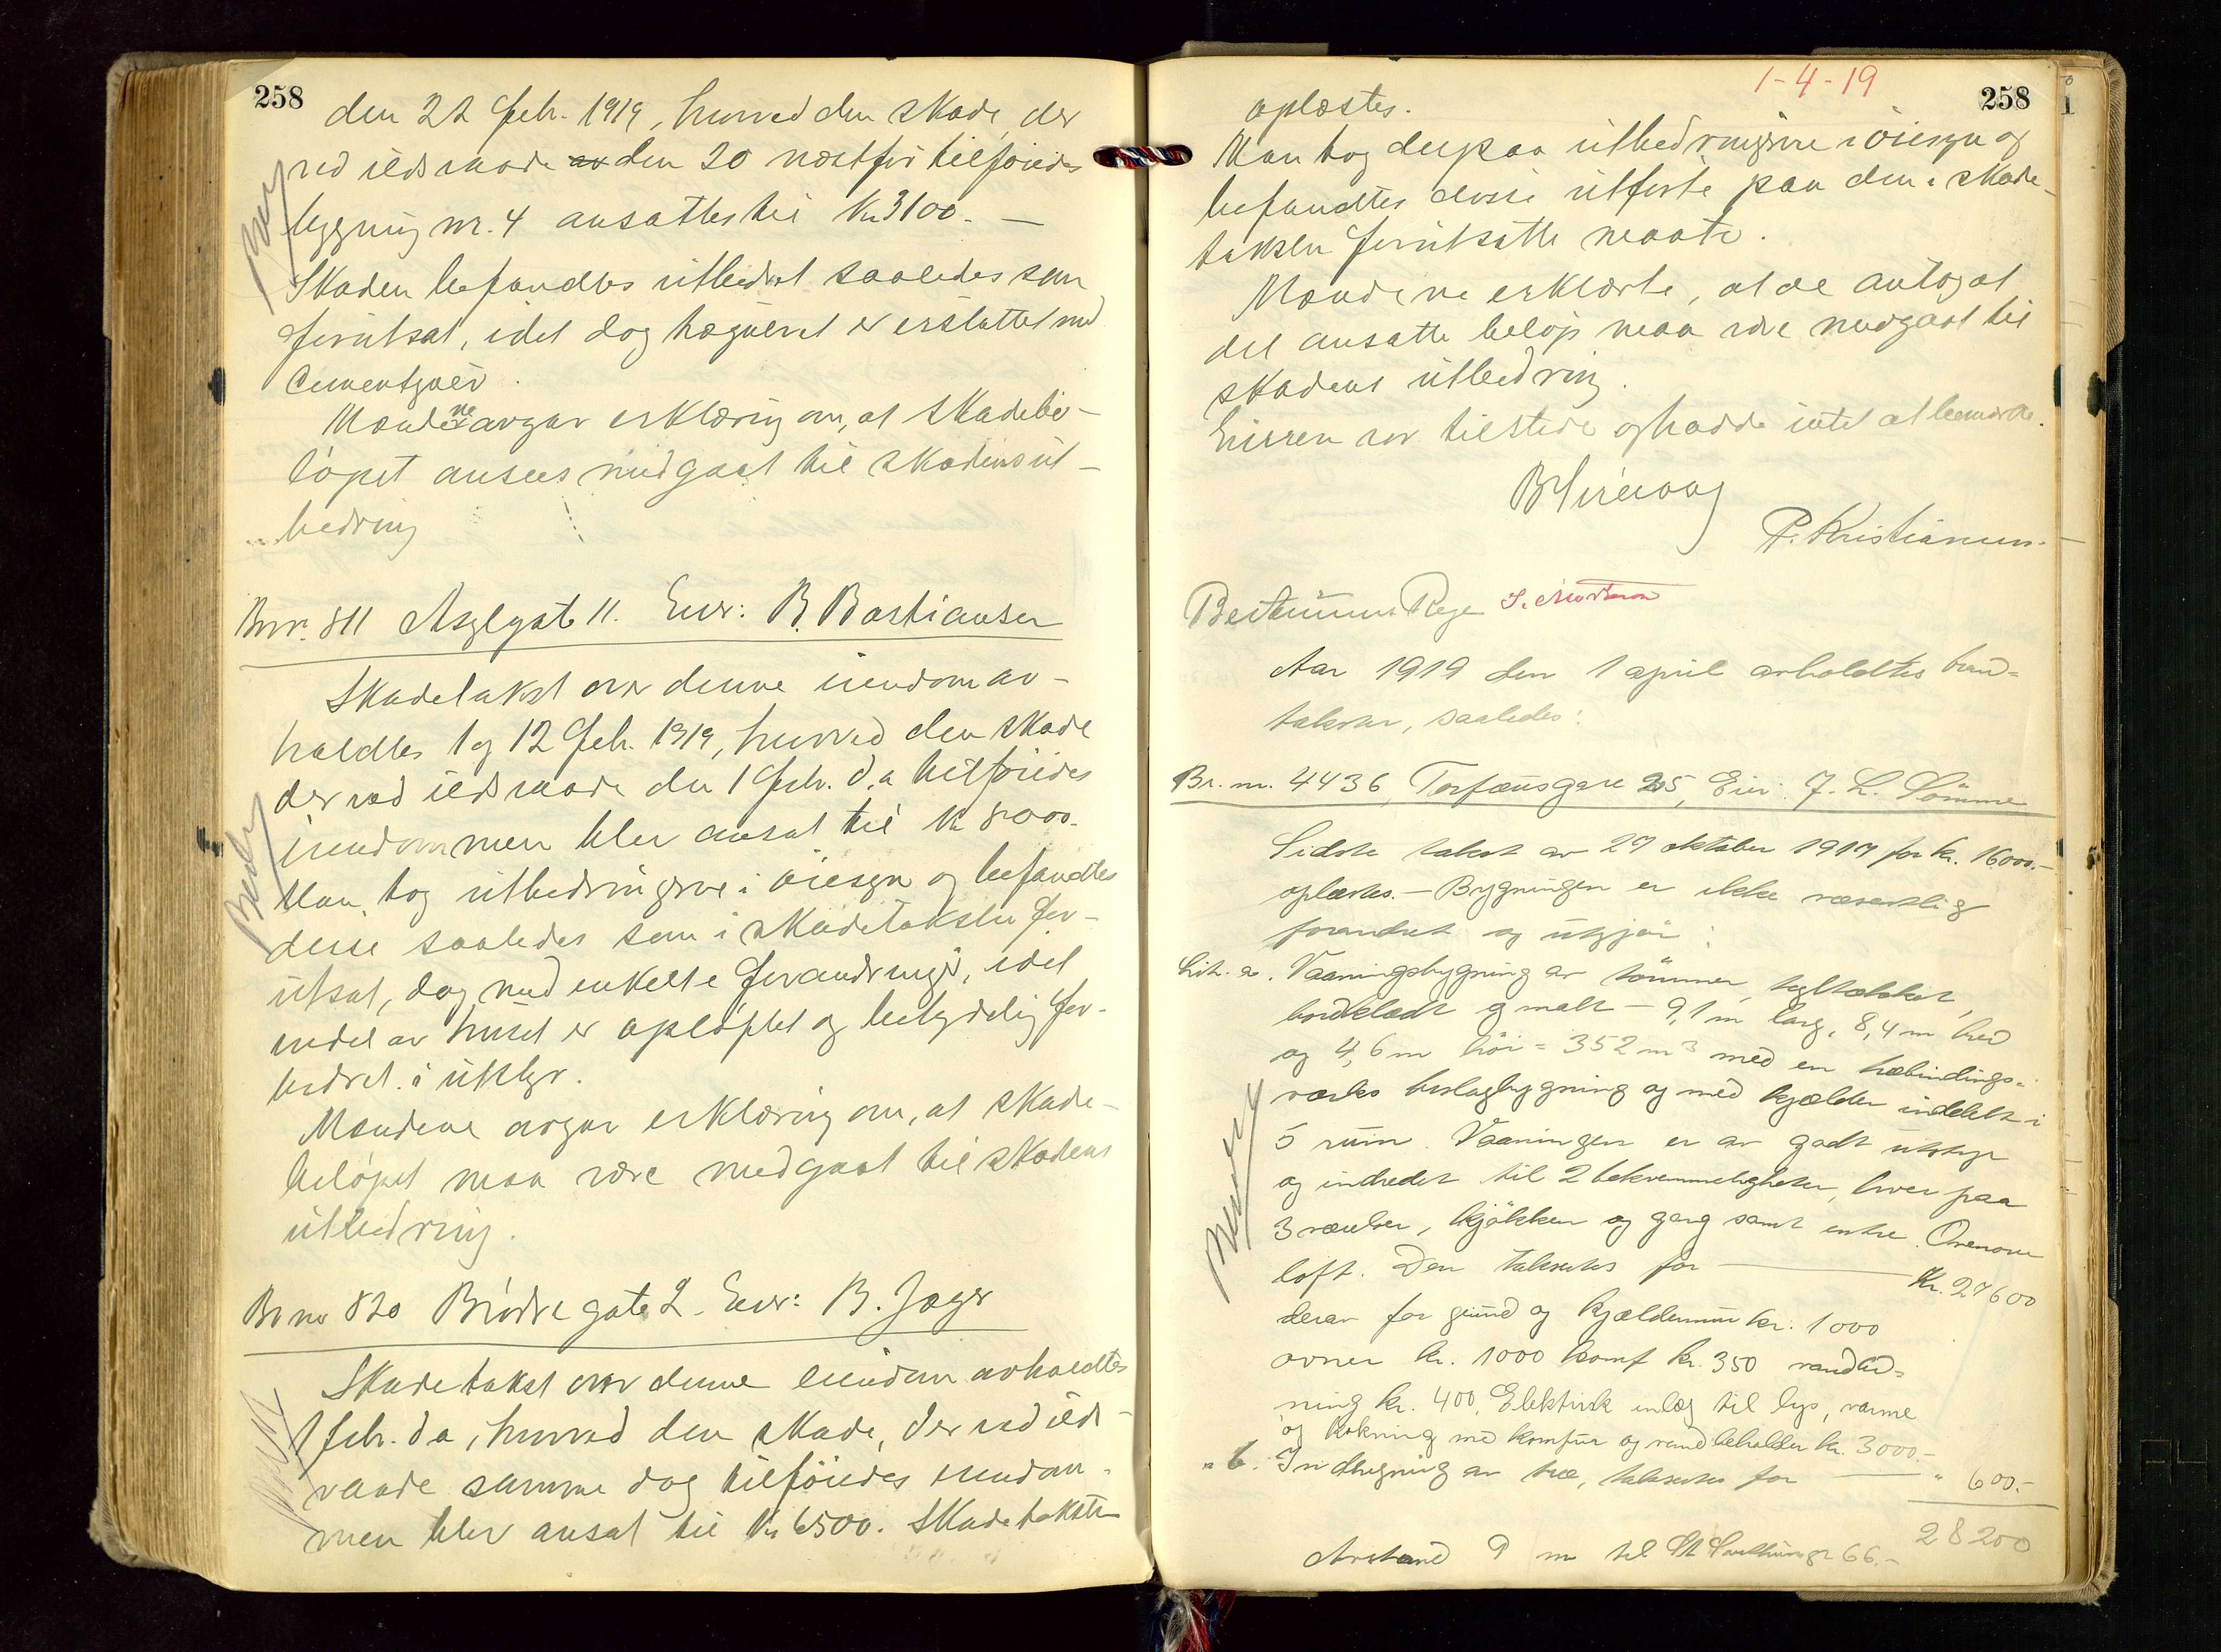 258
den 22 febr. 1919, hvorved den skade, der
ved ildsvaade den 20 næstfør tilføiedes
bygning nr. 4 ansattes til Kr 3100.—
Skaden befandtes utbedret saaledes som
forutsat, idet dog trægulvet er erstattet med
cementgulv.
Mændene avgav erklæring om, at skadebe-
løpet ansees medgaat til skadens ut-
bedring
Br.nr. 811 Asylgate 11. Eier: B. Bastiansen
Skadetakst over denne eiendom av-
holdtes 1 og 12 febr. 1919, hvorved den skade
der ved ildsvaade den 1 febr. d.a. tilføiedes
eiendommen blev ansat til kr 8000.
Man tog utbedringerne i øiesyn og befandtes
disse saaledes som i skadetaksten for-
utsat, dog med enkelte forandringer, idet
endel av huset er opløftet og betydelig for-
bedret i utstyr.
Mændene avgav erklæring om, at skade-
beløpet maa være medgaat til skadens
utbedring.
Br nr 820 Brødregate 2. Eier: B. Jæger
Skadetakst over denne eiendom avholdtes
1 febr. d.a., hvorved den skade, der ved ilds-
vaade samme dag tilføiedes eiendom-
men blev ansat til Kr 6500. Skadetaksten
1-4-19
258
oplæstes.
Man tog derpaa utbedringerne i øiesyn og
befandtes disse utførte paa den i skade-
taksten forutsatte maate.
Mændene erklærte, at de antog at
det ansatte beløp maa være medgaat til
skadens utbedring.
Eieren var tilstede og hadde intet at bemerke.
P. Kristiansen.
Aar 1919 den 1 april avholdtes brand-
takster, saaledes:
Br. nr. 4436, Torfæusgate 25, Eier: J. L. Sømme
Sidste takst av 29 oktober 1917 for kr. 16000.-
oplæstes. — Bygningen er ikke væsentlig
forandret og utgjør:
Lit. a. Vaaningsbygning av tømmer, tegltækket,
bordklædt og malt — 9,1 m lang, 8,4 m bred
og 4,6 m høi = 352 m3 med en træbindings-
verks beslagbygning og med kjælder inddelt i
5 rum. Vaaningen er av godt utstyr
og indredet til 2 bekvemmeligheter, hver paa
3 værelser, kjøkken og gang samt entre. Ovenover
loft. Den takseres for — Kr. 27600
derav for grund og kjældermur kr. 1000
ovner kr. 1000 komf kr. 350 vandled-
ning kr. 400. Elektrisk inlæg til lys, varme
og kokning med komfur og vandbeholder kr. 3000.-
" b. Indhegning av træ, takseres for — " 600.-
28200
Avstand 9 m til St Svithunsgt 66.-